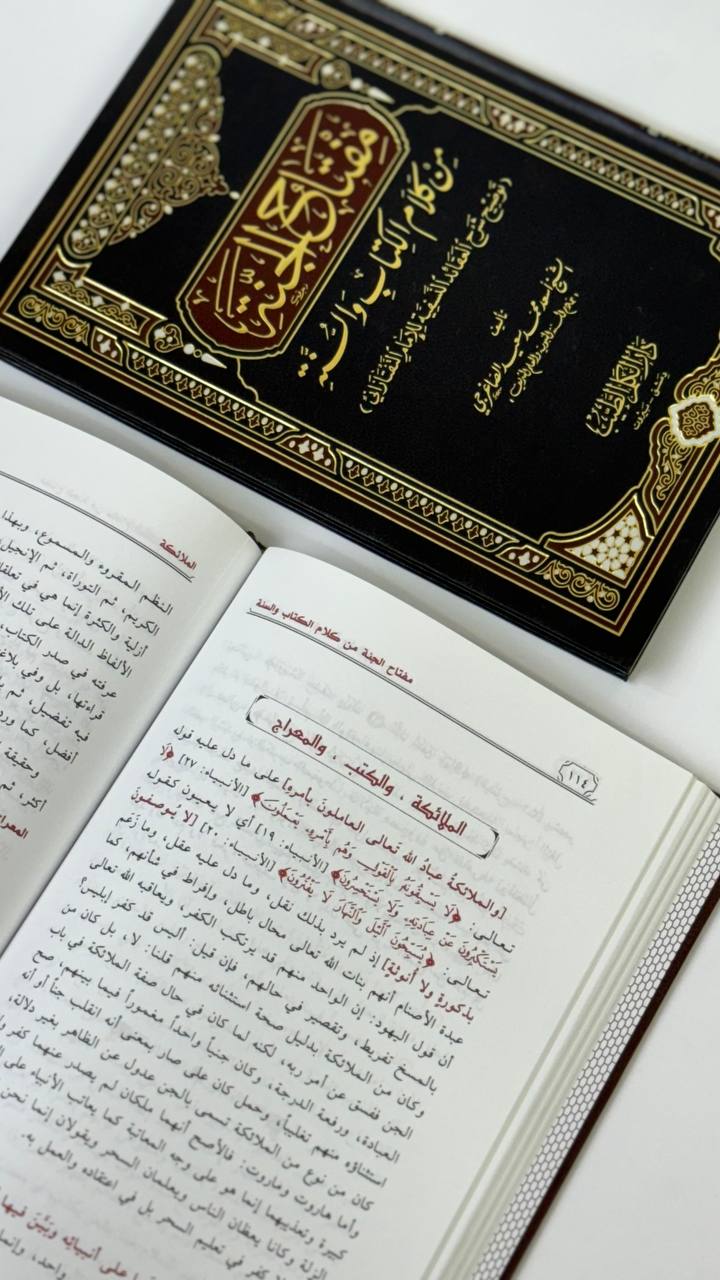 مفتاح الجنة
من كلام الكتاب والسنة
(توضيح شرح العقائد النسفية للإمام التفتازاني)
تأليف
الشيخ أسعد محمد سعيد الصاغرجي
دار الكلم الطيب
دمشق - بيروت
١١٤
مفتاح الجنة من كلام الكتاب والسنة
الملائكة ، والكتب ، والمعراج
[والملائكةُ عبادُ الله تعالى العاملونَ بأمره] على ما دل عليه قول
تعالى: ﴿لَا يَسْبِقُونَهُ بِالْقَوْلِ وَهُم بِأَمْرِهِ يَعْمَلُونَ﴾ [الأنبياء: ٢٧] ﴿لَا
يَسْتَكْبِرُونَ عَنْ عِبَادَتِهِ وَلَا يَسْتَحْسِرُونَ﴾ [الأنبياء: ١٩] أي لا يعيبون كقول
تعالى: ﴿يُسَبِّحُونَ اللَّيْلَ وَالنَّهَارَ لَا يَفْتُرُونَ﴾ [الأنبياء: ٢٠] [لا يُوصفونَ
بذكورةٍ ولا أُنوثة] إذ لم يرد بذلك نقل، وما دل عليه عقل، وما زَعَم
عبدة الأصنام أنهم بنات الله تعالى محال باطل، وإفراط في شأنهم، كما
أن قول اليهود: إن الواحد منهم قد يرتكب الكفر، ويعاقبه الله تعالى
بالمسخ تفريط، وتقصير في حالهم، فإن قيل: أليس قد كفر إبليس؟
وكان من الملائكة بدليل صحة استثنائه منهم قلنا: لا، بل كان من
الجن ففسق عن أمر ربه، لكنه لما كان في حال صفة الملائكة في باب
العبادة، ورفعة الدرجة، وكان جنياً واحداً مغموراً فيما بينهم، صح
استثناؤه منهم تغليباً، وحمل كان على صار بمعنى أنه انقلب جناً أو أنه
كان من نوع من الملائكة تسمى بالجن عدول عن الظاهر بغير دلالة،
وأما هاروت وماروت: فالأصح أنهما ملكان لم يصدر عنهما كفر ولا
كبيرة وتعذيبهما إنما هو على وجه المعاتبة كما يعاتب الأنبياء على
الزلة وكانا يعظان الناس ويعلمان السحر ويقولان إنما نحن
كفر في تعليم السحر بل في اعتقاده والعمل به.
على أنبيائه وبَيَّنَ فيها
واحد، وإنما
الملائكة
النظم المقروء والمسموع، وبهذا
الكريم، ثم التوراة، ثم الإنجيل
أزلية والكثرة إنما هي في تعلقا
الألفاظ الدالة على تلك الأ
عرفته في صدر الكتاب،
قراءتها، بل وفي بلاغ
فيه تفضيل، ثم با
أفضل، كما ورد
وحقيقة
أكثر، ثم
المعراج